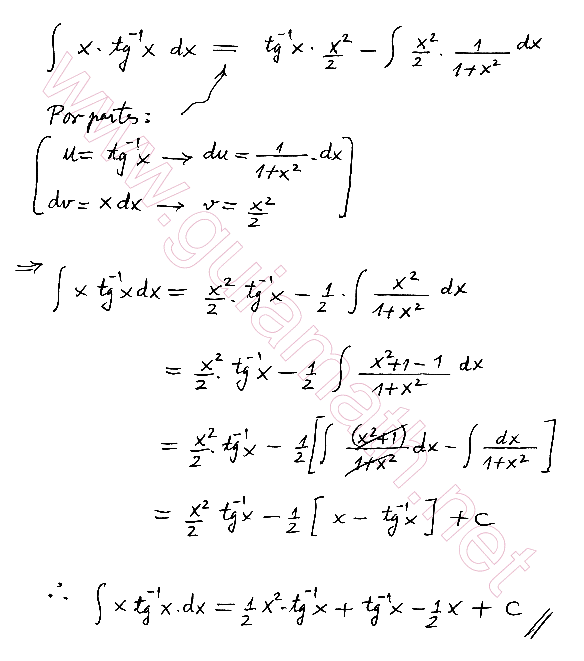 ∫ x · tg⁻¹x dx = tg⁻¹x · x²/2 − ∫ x²/2 · 1/(1+x²) dx
Por partes:
[ u = tg⁻¹x → du = 1/(1+x²) · dx
dv = x dx → v = x²/2 ]
⇒ ∫ x tg⁻¹x dx = x²/2 · tg⁻¹x − 1/2 · ∫ x²/(1+x²) dx
= x²/2 · tg⁻¹x − 1/2 ∫ (x²+1−1)/(1+x²) dx
= x²/2 · tg⁻¹x − 1/2 [ ∫ (x²+1)/(1+x²) dx − ∫ dx/(1+x²) ]
= x²/2 tg⁻¹x − 1/2 [ x − tg⁻¹x ] + C
∴ ∫ x tg⁻¹x · dx = 1/2 x² · tg⁻¹x + tg⁻¹x − 1/2 x + C //
www.guiamath.net